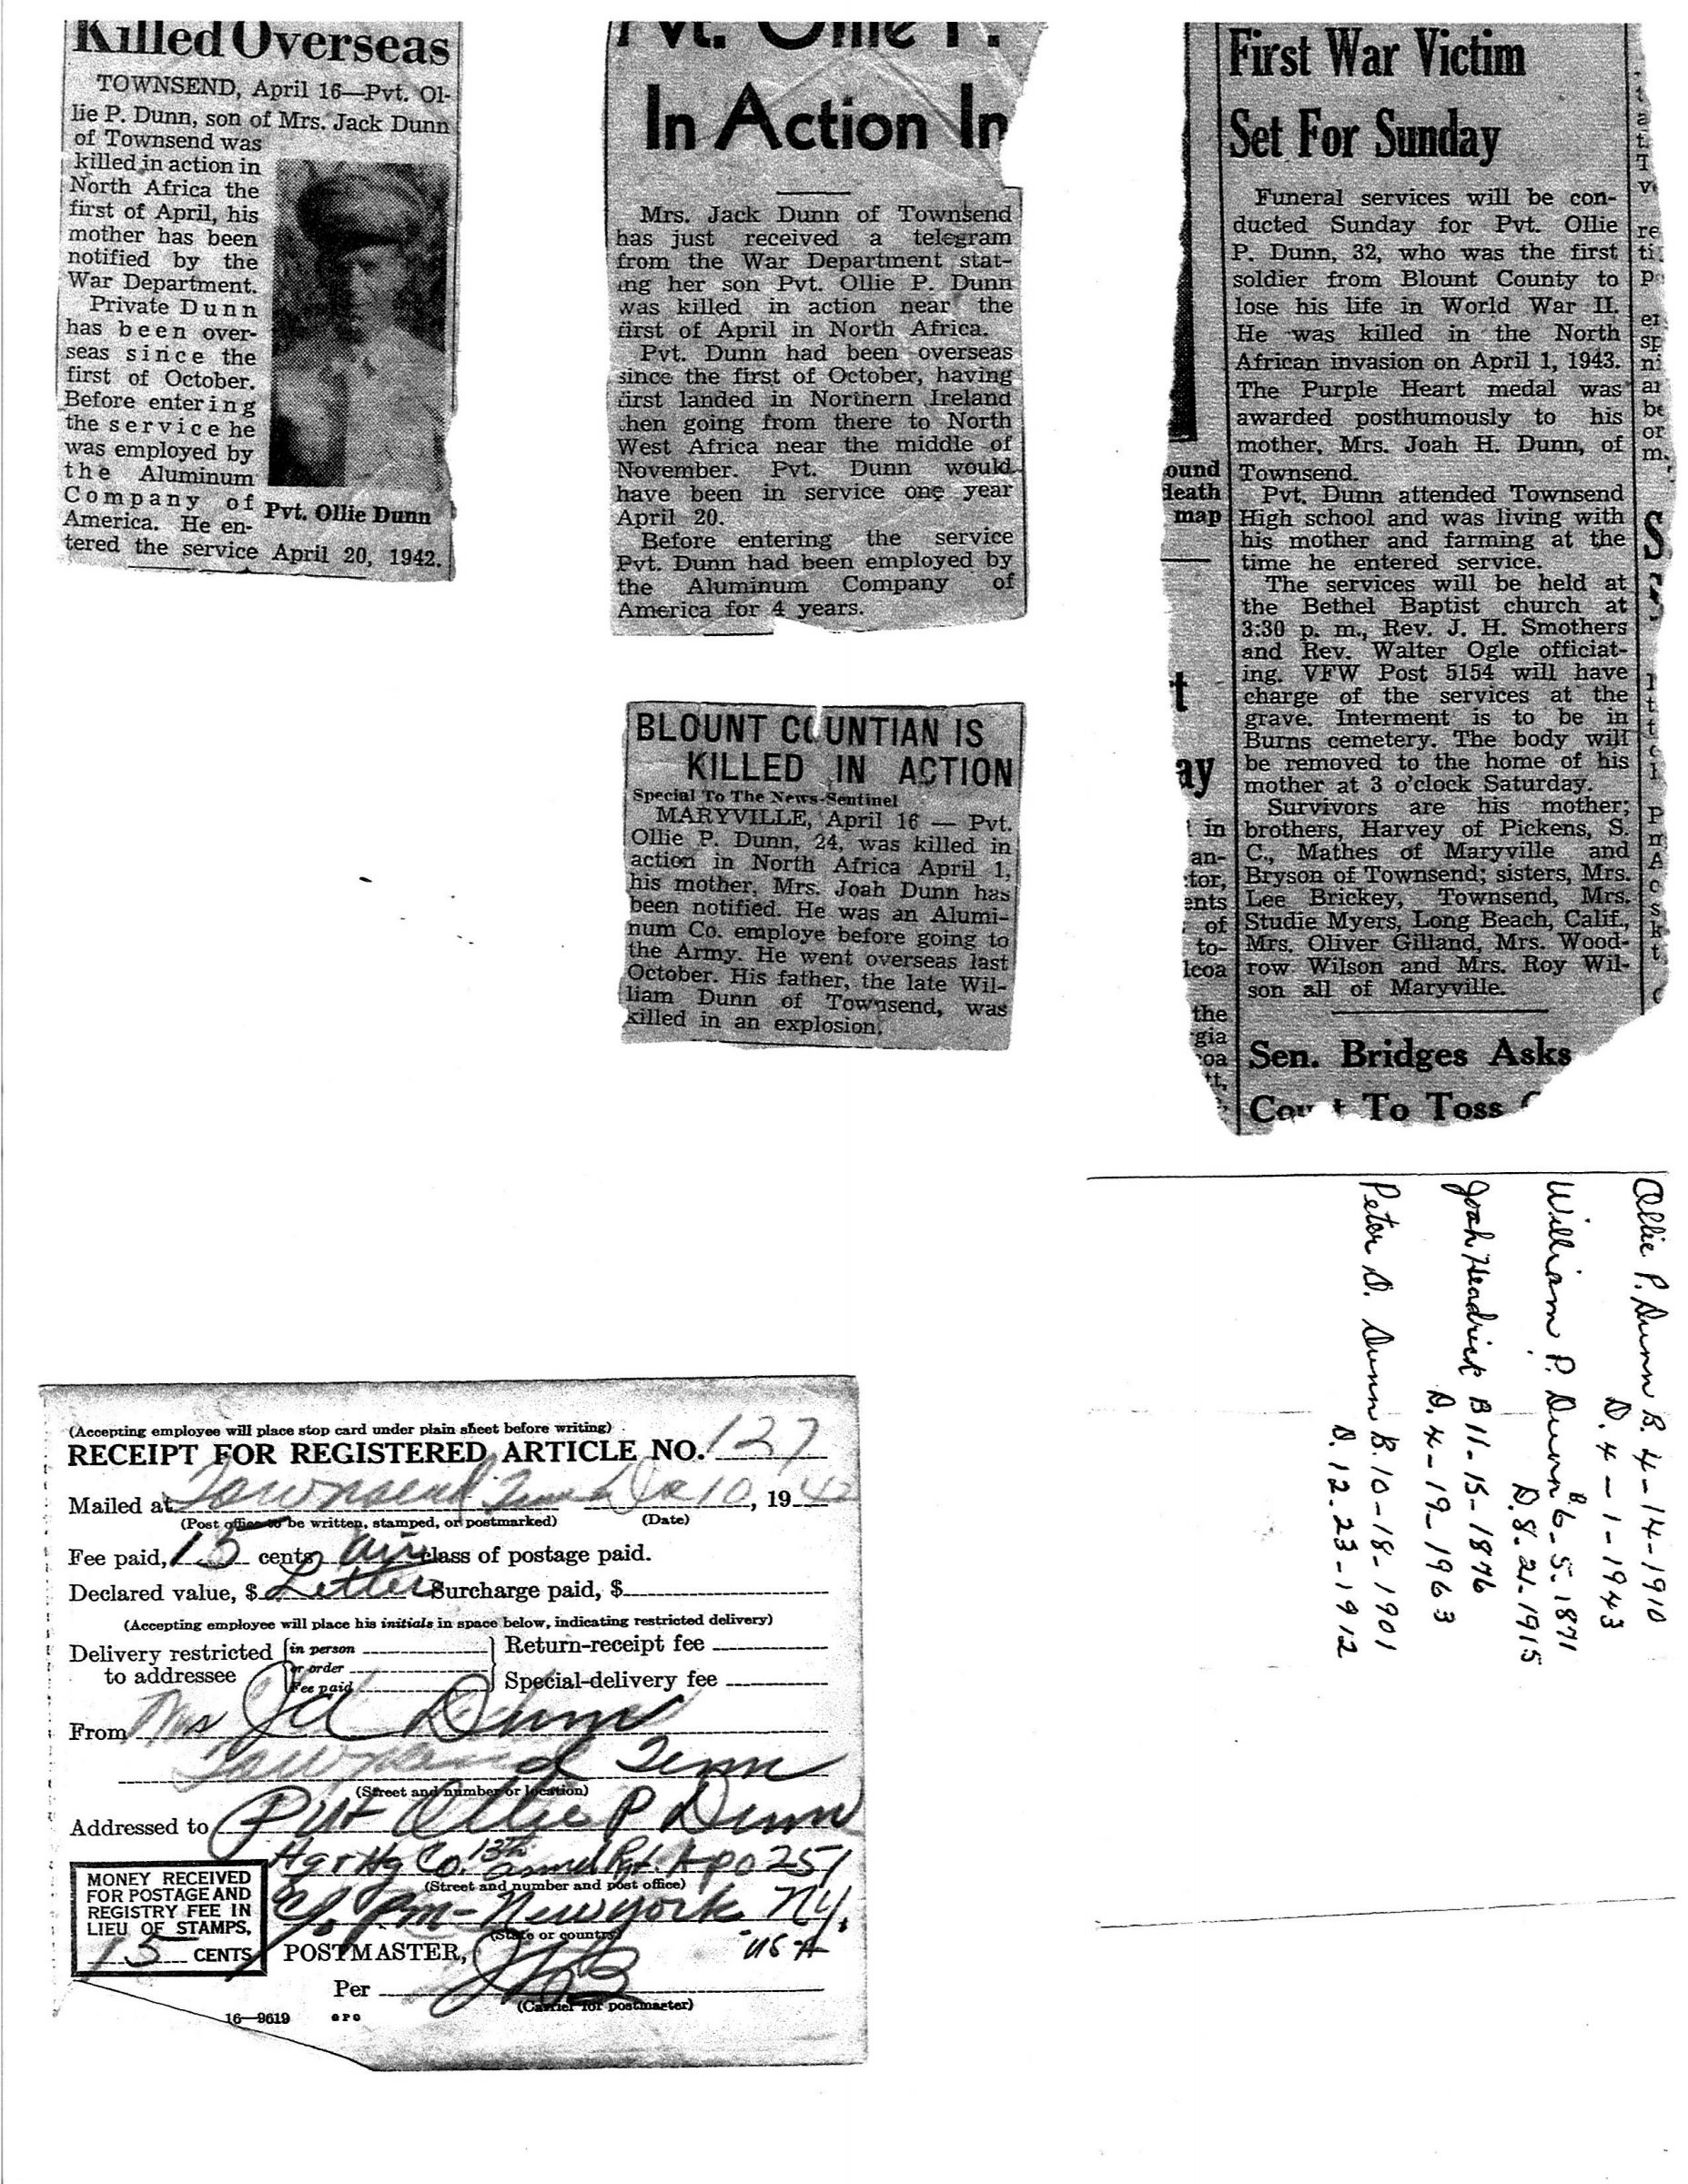 Killed Overseas
TOWNSEND, April 16—Pvt. Ol-
lie P. Dunn, son of Mrs. Jack Dunn
of Townsend was
killed in action in
North Africa the
first of April, his
mother has been
notified by the
War Department.
Private Dunn
has been over-
seas since the
first of October.
Before entering
the service he
was employed by
the Aluminum
Company of
America. He en-
tered the service April 20, 1942.
Pvt. Ollie Dunn
Pvt. Ollie P.
In Action In
Mrs. Jack Dunn of Townsend
has just received a telegram
from the War Department stat-
ing her son Pvt. Ollie P. Dunn
was killed in action near the
first of April in North Africa.
Pvt. Dunn had been overseas
since the first of October, having
first landed in Northern Ireland
then going from there to North
West Africa near the middle of
November. Pvt. Dunn would
have been in service one year
April 20.
Before entering the service
Pvt. Dunn had been employed by
the Aluminum Company of
America for 4 years.
BLOUNT COUNTIAN IS
KILLED IN ACTION
Special To The News-Sentinel
MARYVILLE, April 16 — Pvt.
Ollie P. Dunn, 24, was killed in
action in North Africa April 1,
his mother, Mrs. Joah Dunn has
been notified. He was an Alumi-
num Co. employe before going to
the Army. He went overseas last
October. His father, the late Wil-
liam Dunn of Townsend, was
killed in an explosion.
First War Victim
Set For Sunday
Funeral services will be con-
ducted Sunday for Pvt. Ollie
P. Dunn, 32, who was the first
soldier from Blount County to
lose his life in World War II.
He was killed in the North
African invasion on April 1, 1943.
The Purple Heart medal was
awarded posthumously to his
mother, Mrs. Joah H. Dunn, of
Townsend.
Pvt. Dunn attended Townsend
High school and was living with
his mother and farming at the
time he entered service.
The services will be held at
the Bethel Baptist church at
3:30 p. m., Rev. J. H. Smothers
and Rev. Walter Ogle officiat-
ing. VFW Post 5154 will have
charge of the services at the
grave. Interment is to be in
Burns cemetery. The body will
be removed to the home of his
mother at 3 o'clock Saturday.
Survivors are his mother;
brothers, Harvey of Pickens, S.
C., Mathes of Maryville and
Bryson of Townsend; sisters, Mrs.
Lee Brickey, Townsend, Mrs.
Studie Myers, Long Beach, Calif.,
Mrs. Oliver Gilland, Mrs. Wood-
row Wilson and Mrs. Roy Wil-
son all of Maryville.
Sen. Bridges Asks
Court To Toss
ound
death
map
Ollie P. Dunn B. 4-14-1910
D. 4-1-1943
William P. Dunn B 6-5-1871
D. 8.21.1915
Joah Headrick B 11-15-1876
D. 4-19-1963
Peter D. Dunn B. 10-18-1901
D. 12.23-1912
(Accepting employee will place stop card under plain sheet before writing)
RECEIPT FOR REGISTERED ARTICLE NO. 127
Mailed at Townsend Tenn Dec 10, 1942
(Post office to be written, stamped, or postmarked) (Date)
Fee paid, 15 cents air class of postage paid.
Declared value, $ Letter Surcharge paid, $
(Accepting employee will place his initials in space below, indicating restricted delivery)
Delivery restricted to addressee
in person
or order
Fee paid
Return-receipt fee
Special-delivery fee
From Mrs Jd Dunn
Townsend Tenn
(Street and number or location)
Addressed to Pvt Ollie P Dunn
Hq & Hq Co. 13th armd Rgt. Apo 251
(Street and number and post office)
c/o Pm - Newyork Ny.
(State or country)
USA
MONEY RECEIVED
FOR POSTAGE AND
REGISTRY FEE IN
LIEU OF STAMPS,
15 CENTS
POSTMASTER,
Per
(Carrier for postmaster)
16—9619 GPO